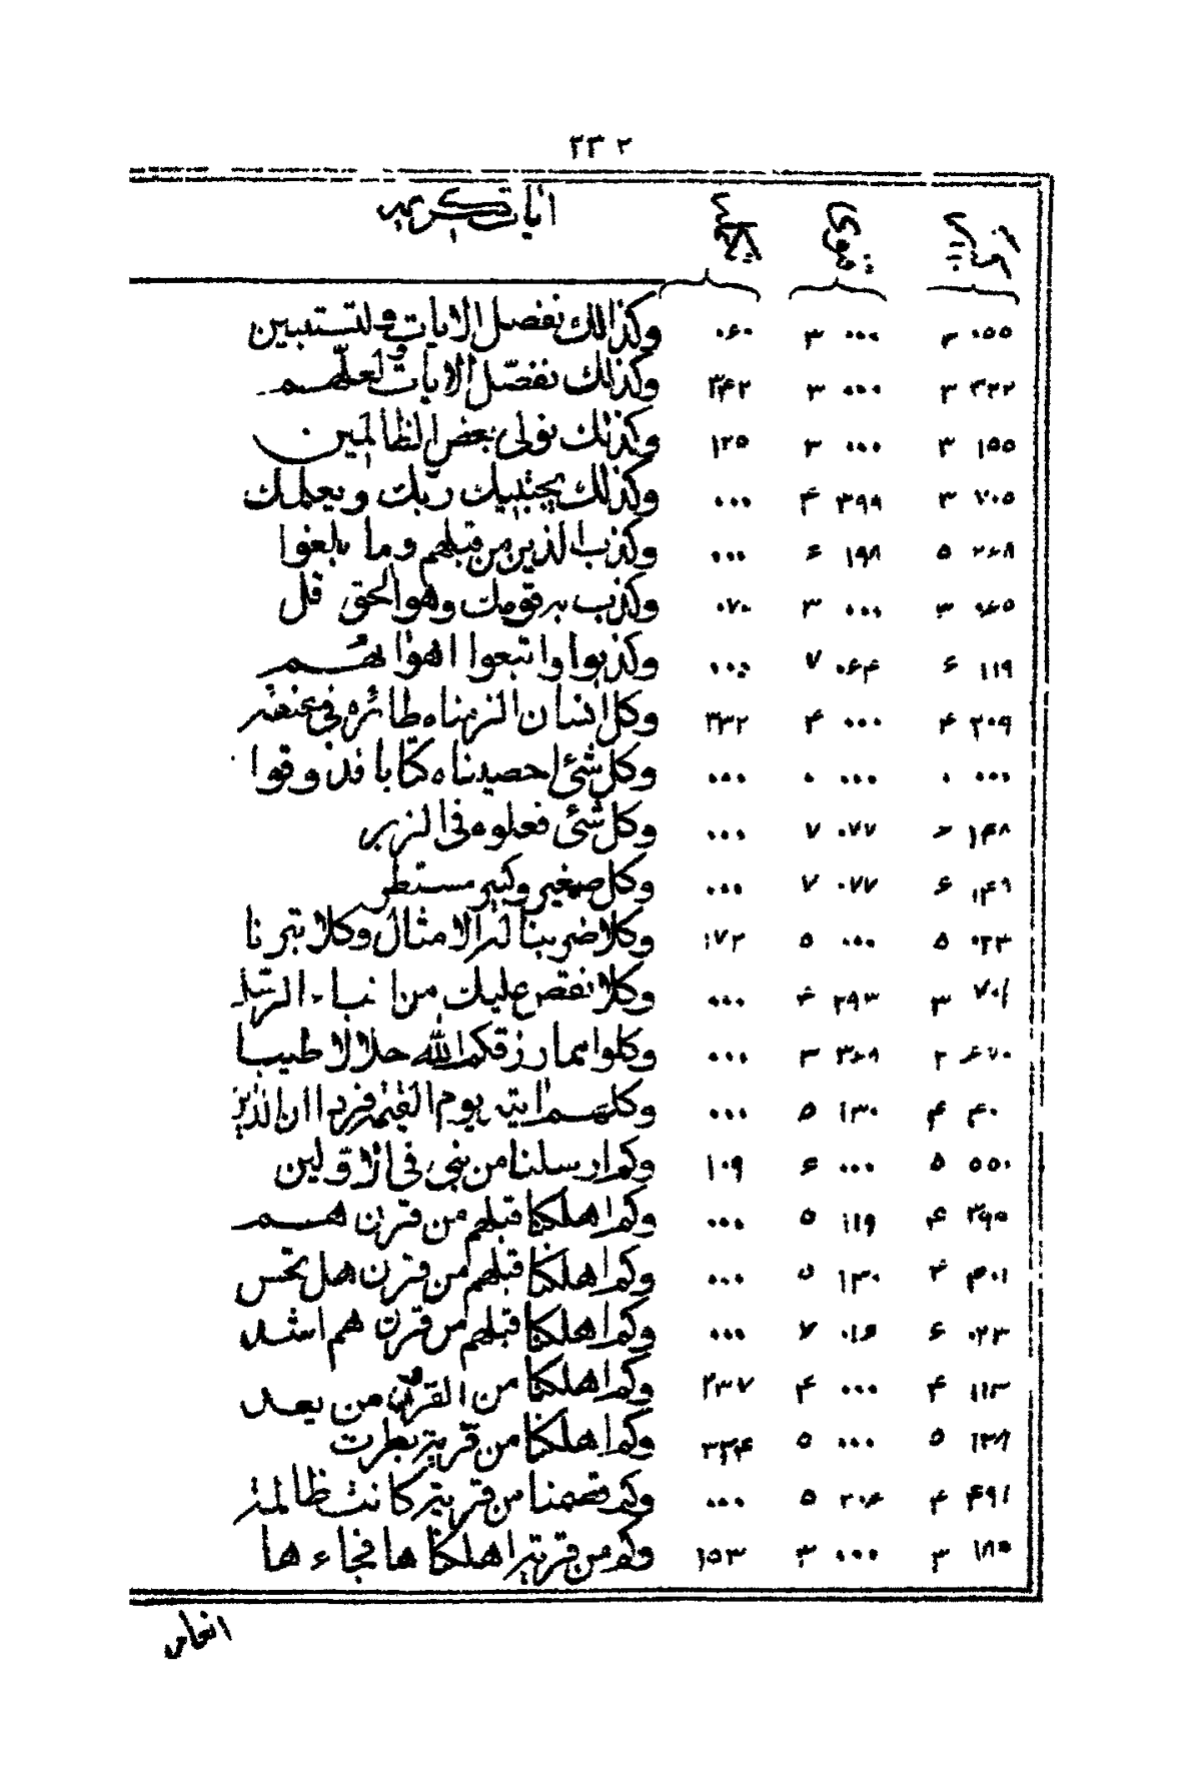 ٢٣٢
آيات كريمه
وكذالك نفصل الايات ولتستبين ٠٦٠ ٣ ٠٠٠ ٣ ٠٥٥
وكذلك نفصّل الايات ولعلّهم ٣۴٢ ٣ ٠٠٠ ٣ ۴٢٢
وكذلك نولى بعض الظالمين ١٢٥ ٣ ٠٠٠ ٣ ١٥٥
وكذلك يجتبيك ربّك ويعلمك ٠٠٠ ۴ ٣٩٩ ٣ ٧٠٥
وكذب الذين من قبلهم وما بلغوا ٠٠٠ ۶ ١٩٨ ٥ ٢۶٨
وكذب به قومك وهو الحق قل ٠٧٠ ٣ ٠٠٠ ٣ ٠۶٥
وكذبوا واتبعوا اهوائهم ٠٠٠ ٧ ٠۶۴ ۶ ١١٩
وكل انسان الزمناه طائره فى عنقه ٣٣٢ ۴ ٠٠٠ ۴ ٢٠٩
وكل شئ احصيناه كتابا فذوقوا ٠٠٠ ٠ ٠٠٠ ٠ ٠٠٠
وكل شئ فعلوه فى الزبر ٠٠٠ ٧ ٠٧٧ ۶ ١۴٨
وكل صغير وكبير مستطر ٠٠٠ ٧ ٠٧٧ ۶ ١۴٩
وكلا ضربنا له الامثال وكلا تبرنا ١٧٢ ٥ ٠٠٠ ٥ ٠٢٣
وكلا نقص عليك من انباء الرسل ٠٠٠ ۴ ٢٩٣ ٣ ٧٠١
وكلوا مما رزقكم الله حلالا طيبا ٠٠٠ ٣ ٣۶٨ ٢ ۶٧٠
وكلهم اتيه يوم القيمه فردا ان الذين ٠٠٠ ٥ ١٣٠ ۴ ۴٠
وكم ارسلنا من نبى فى الاولين ١٠٩ ۶ ٠٠٠ ٥ ٥٥٠
وكم اهلكنا قبلهم من قرن هم ٠٠٠ ٥ ١١٩ ۴ ٣٩٥
وكم اهلكنا قبلهم من قرن هل تحس ٠٠٠ ٥ ١٣٠ ۴ ۴٠١
وكم اهلكنا قبلهم من قرن هم اشد ٠٠٠ ٧ ٠١۶ ۶ ٠٢٣
وكم اهلكنا من القرون من بعد ٢٣٧ ۴ ٠٠٠ ۴ ١١٣
وكم اهلكنا من قرية بطرت ٣٣۴ ٥ ٠٠٠ ٥ ١٣٨
وكم قصمنا من قرية كانت ظالمة ٠٠٠ ٥ ٢٠۶ ۴ ۴٩١
وكم من قرية اهلكناها فجاءها ١٥٣ ٣ ٠٠٠ ٣ ١٨٥
انعام